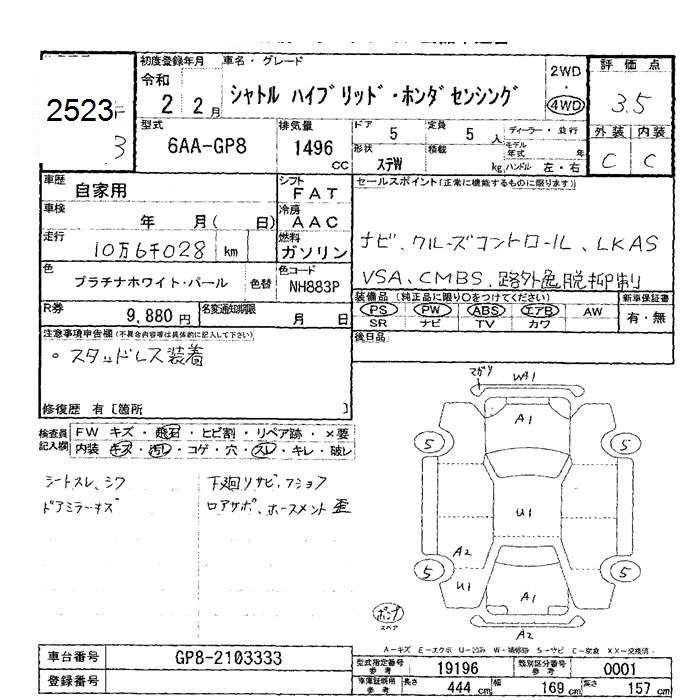 2523
3
初度登録年月
令和
2 2月
車名・グレード
シャトル ハイブリッド・ホンダセンシング
2WD
・
4WD
評価点
3.5
外装 内装
C C
型式
6AA-GP8
排気量
1496
CC
ドア 5
定員 5 人
形状 ステW
積載 kg
ディーラー・並行
モデル年式 年
ハンドル 左・右
車歴 自家用
シフト FAT
車検 年 月( 日)
冷房 AAC
走行 10万6千028 km
燃料 ガソリン
色 プラチナホワイト・パール 色替
色コード NH883P
R券 9,880 円
名変通知期限 月 日
セールスポイント(正常に機能するものに限ります)
ナビ、クルーズコントロール、LKAS
VSA、CMBS、路外逸脱抑制
装備品(純正品に限り○をつけてください)
PS PW ABS エアB AW
SR ナビ TV カワ
新車保証書
有・無
後日品
注意事項申告欄(不具合内容等は具体的に記入して下さい)
。スタッドレス装着
修復歴 有〔箇所 〕
検査員記入欄
FW キズ・飛石・ヒビ割・リペア跡・×要
内装 キズ・汚レ・コゲ・穴・スレ・キレ・破レ
シートスレ、シワ
ドアミラーキズ
下廻リサビ、フショク
ロアサポ、ホースメント歪
マガリ WA1
A1
5 5
U1
A2
U1 A1
5 5
A2
パンク
スペア
A-キズ E-エクボ U-凹み W-補修跡 S-サビ C-腐食 XX-交換済
車台番号 GP8-2103333
登録番号
型式指定番号 参考 19196
類別区分番号 参考 0001
車庫証明用 参考
長さ 444 cm
幅 169 cm
高さ 157 cm